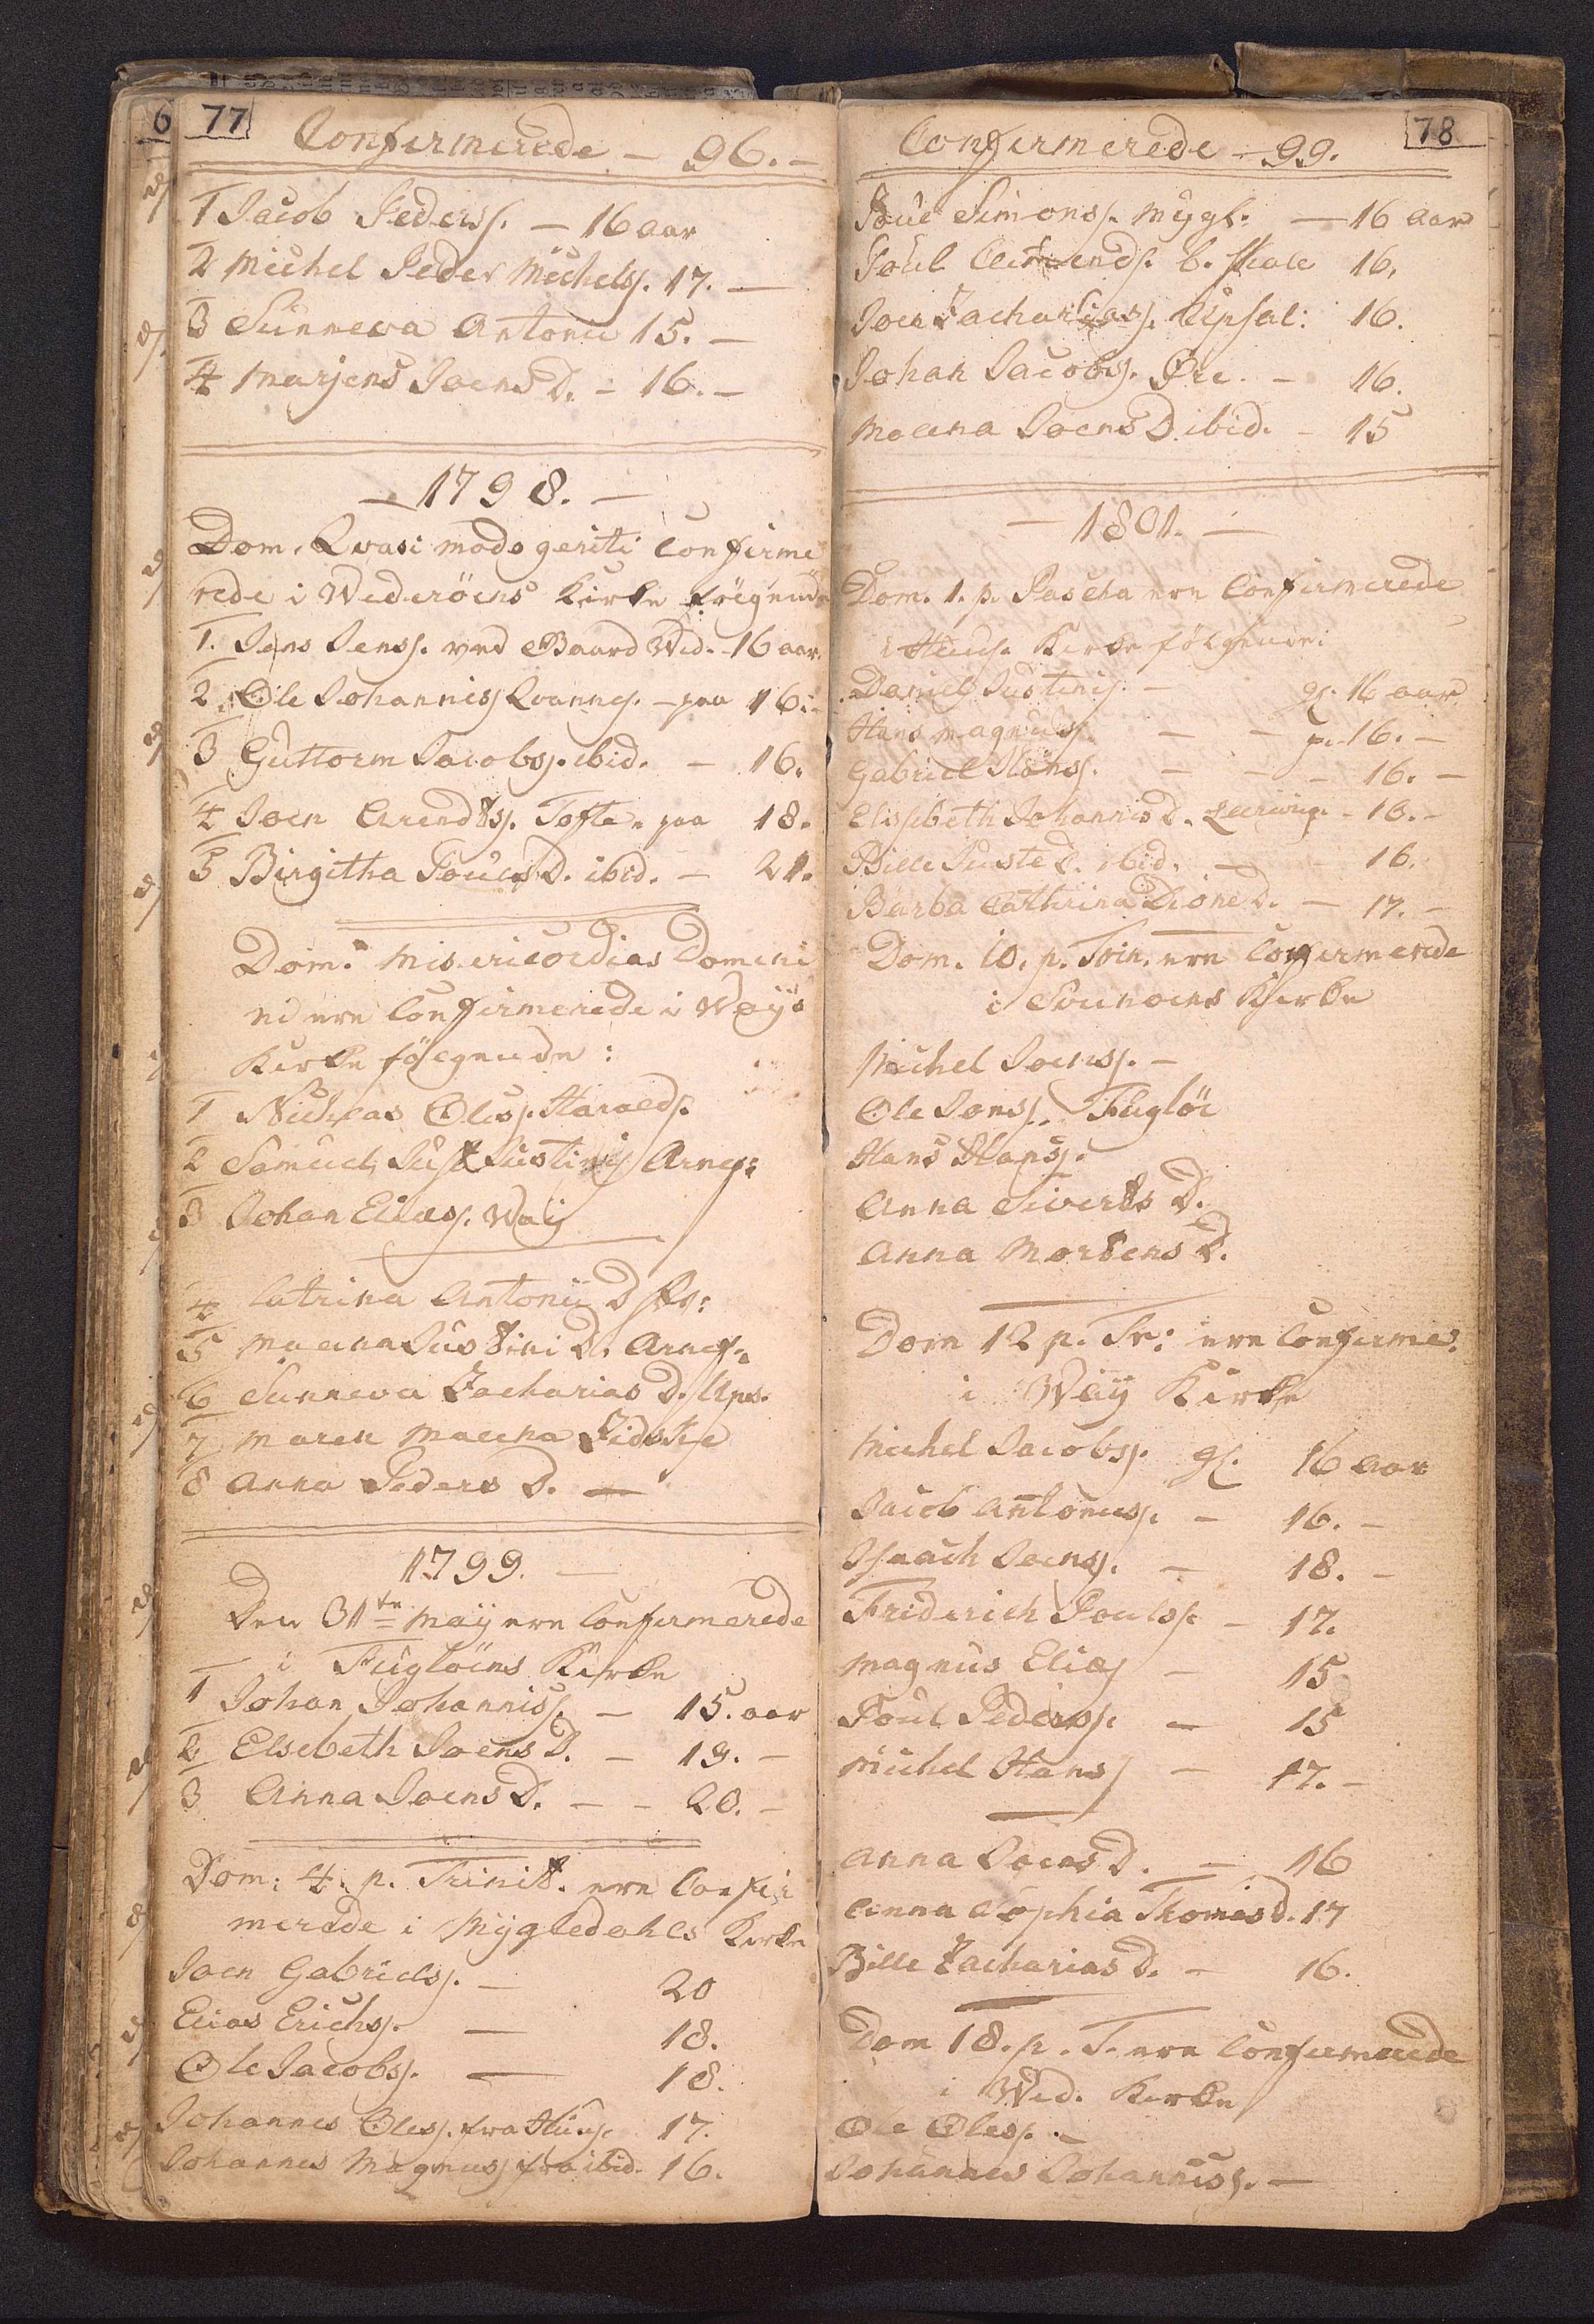 77
Confirmerede - 96. -
1 Jacob Peders. - 16 aar
2 Michel Peder Michels. 17. -
3 Sunneva Antonii 15. -
4 Marjens Joens D. - 16. -
- 1798. -
Dom. Qvasi modo geniti Confirme
rede i Wederöens Kirke følgende
1. Jens Jens. ved Baard Wid. - 16 aar.
2. Ole Johannis Qvannes. - paa 16 -
3 Guttorm Jacobs. ibid. - 16.
4 Joen Arendts. Tofte - paa 18.
5 Birgitha Pouls D. ibid. - 21.
Dom. Misericordias Domini
ere Confirmerede i Waÿs
Kirke følgende :
1 Nicklas Oles. Haralds.
2 Samuel Just Justinis Arnef:
3 Johan Elias. Waÿ
4 Catrina Antonii D
5 Malena Justini D. Arnef.
6 Sunneva Zacharias D. Ups.
7 Maren Malena
8 Anna Peders D. -
1799. -
Den 31te Maÿ ere Confirmerede
i Fuglöens Kirke
1 Johan Johannis. - 15. aar
2 Elsebeth Joens D. - 19. -
3 Anna Joens D. - - 20. -
Dom: 4. p. Trinit. ere Confir
merede i Mÿgledahls Kirke
Joen Gabriels. - 20
Elias Erichs. - 18.
Ole Jacobs. - 18.
Johannes Oles. fra Huus. 17.
Johannes Magnus. fra ibid. 16.
78
Confirmerede - 99.
Poul Simons. Mÿgl. - 16 aar
Poul Clemends. b. Skale 16.
Joen Zacharias. Upsal: 16.
Johan Jacobs. Øre. - 16.
Malena Joens D. ibid. - 15
- 1801. -
Dom. 1. p. Pascha ere Confirmerede
i Huus. Kirke følgende:
Daniel Justinis. - gl. 16 aar
Hans Magnus. - - 16. -
Gabriel Hans. - - - 16. -
Elisebeth Johannis D. - 16. -
Bille Juste D. ibid. - - 16.
Barba Cathrina D. - 17. -
Dom. 10. p. Trin. ere Confirmerede
i Svinoens Kirke
Michel Joens. -
Ole Jons. Fuglöe
Hans Hans.
Anna Siverts D.
Anna Mortens D.
Dom 12 p. Tr: ere Confirme:
i Waÿ Kirke
Michel Jacobs. gl. 16 aar
Jacob Antonius. - 16. -
Isaach Joens. - 18. -
Friderich Pouls. - 17.
Magnus Elias - 15
Poul Peders. - 15
Michel Hans - 17. -
Anna Joens D. - 16
Anna Sophia Thomis D. 17
Bille Zacharias D. - 16.
Dom 18. p. T. ere Confirmerede
i Wid. Kirke
Ole Oles. -
Johannes Johannis. -